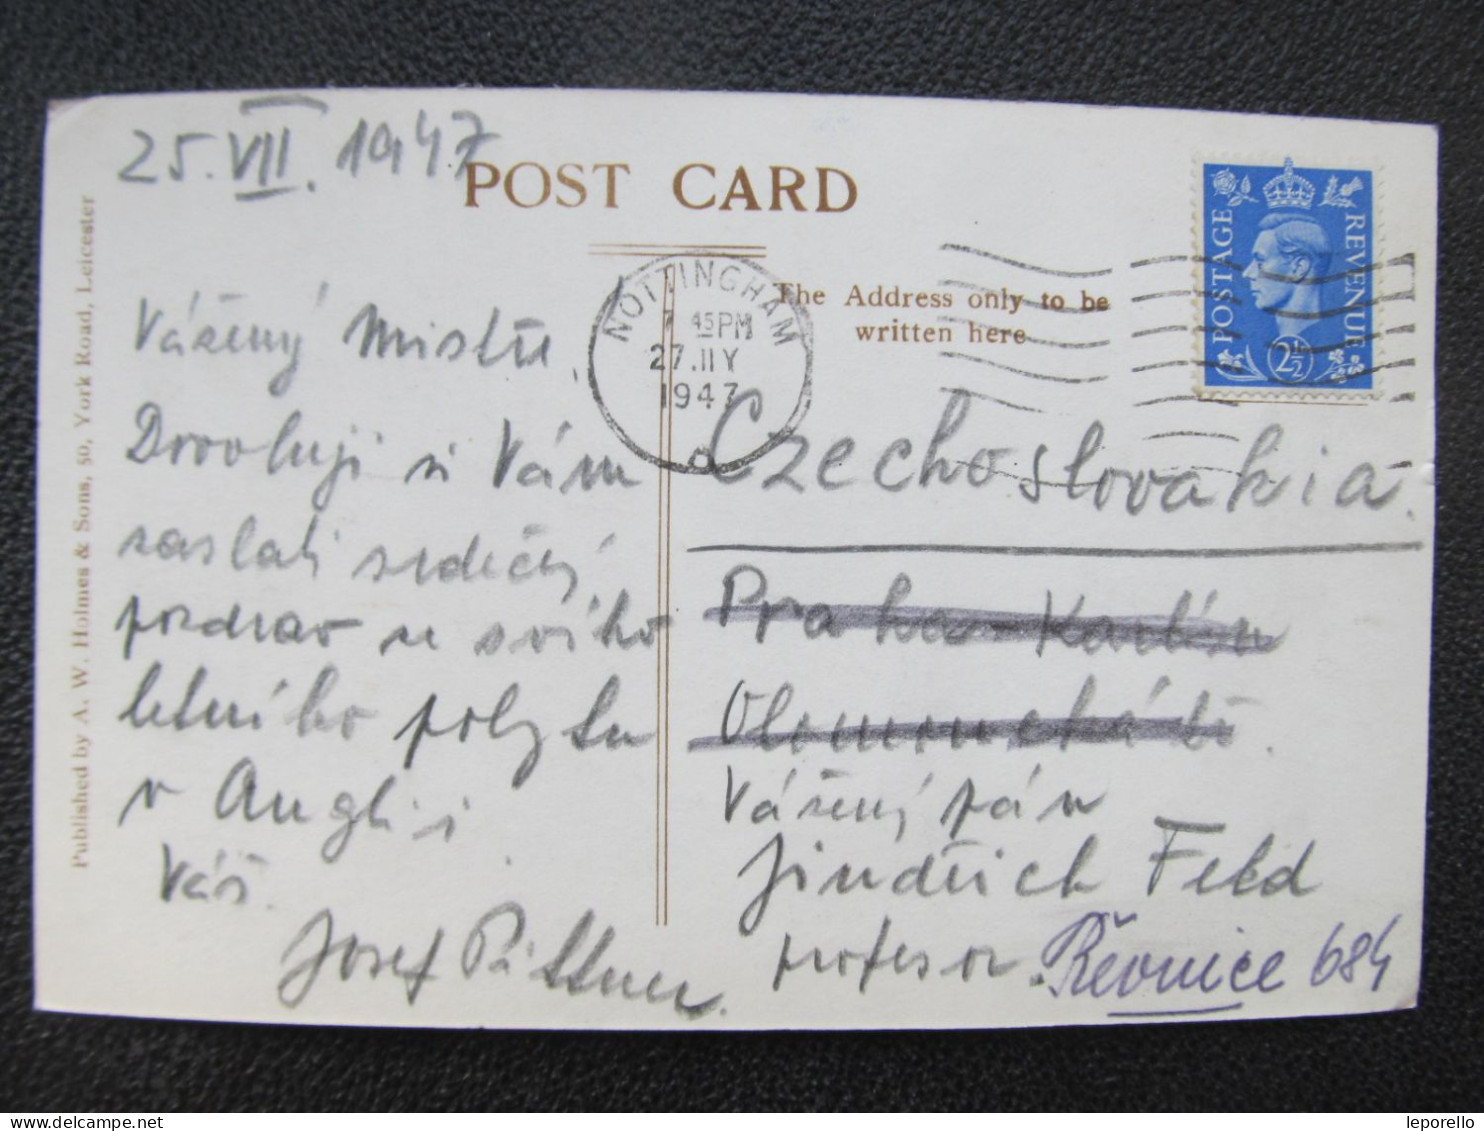 25. VII. 1947
POST CARD
The Address only to be
written here
POSTAGE
REVENUE
2½
NOTTINGHAM
45 PM
1947
Vážený Mistře.
Dovoluji si Vám
zaslati srdečný
pozdrav ze svého
letního pobytu
v Anglii.
Váš
Josef Pittner.
Czechoslovakia.
Praha-Karlín
Olomoucká
Vážený pán
Jindřich Feld
profesor.
Řevnice 684
Published by A. W. Holmes & Sons, 50, York Road, Leicester
leporello